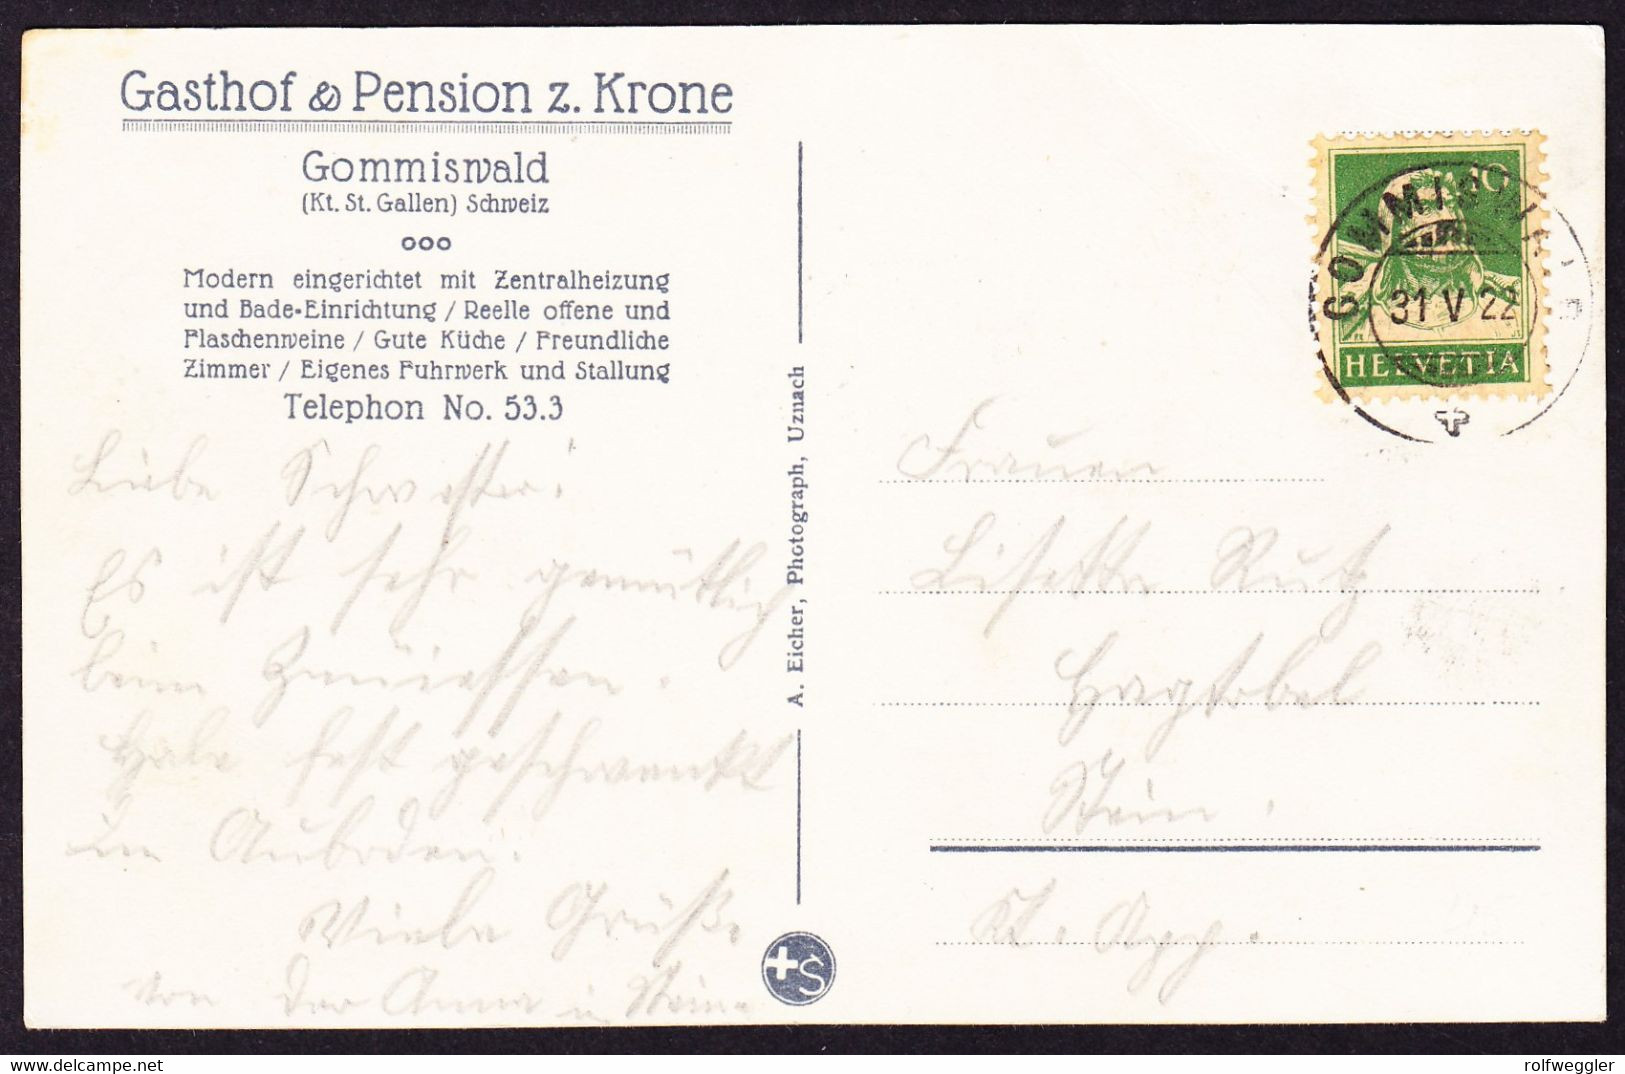 Gasthof & Pension z. Krone
Gommiswald
(Kt. St. Gallen) Schweiz
ooo
Modern eingerichtet mit Zentralheizung
und Bade-Einrichtung / Reelle offene und
Flaschenweine / Gute Küche / Freundliche
Zimmer / Eigenes Fuhrwerk und Stallung
Telephon No. 53.3
Liebe Schwester!
Es ist sehr gemütlich
beim
Habe fest geschwenkt
im
Viele Grüße
von der Anna in Stein
A. Eicher, Photograph, Uznach
+S
10
GOMMISWALD
31 V 22
HELVETIA
Frauen
Lisette Rutz
Hagtobel
Stein.
Kt. App.
rolfweggler